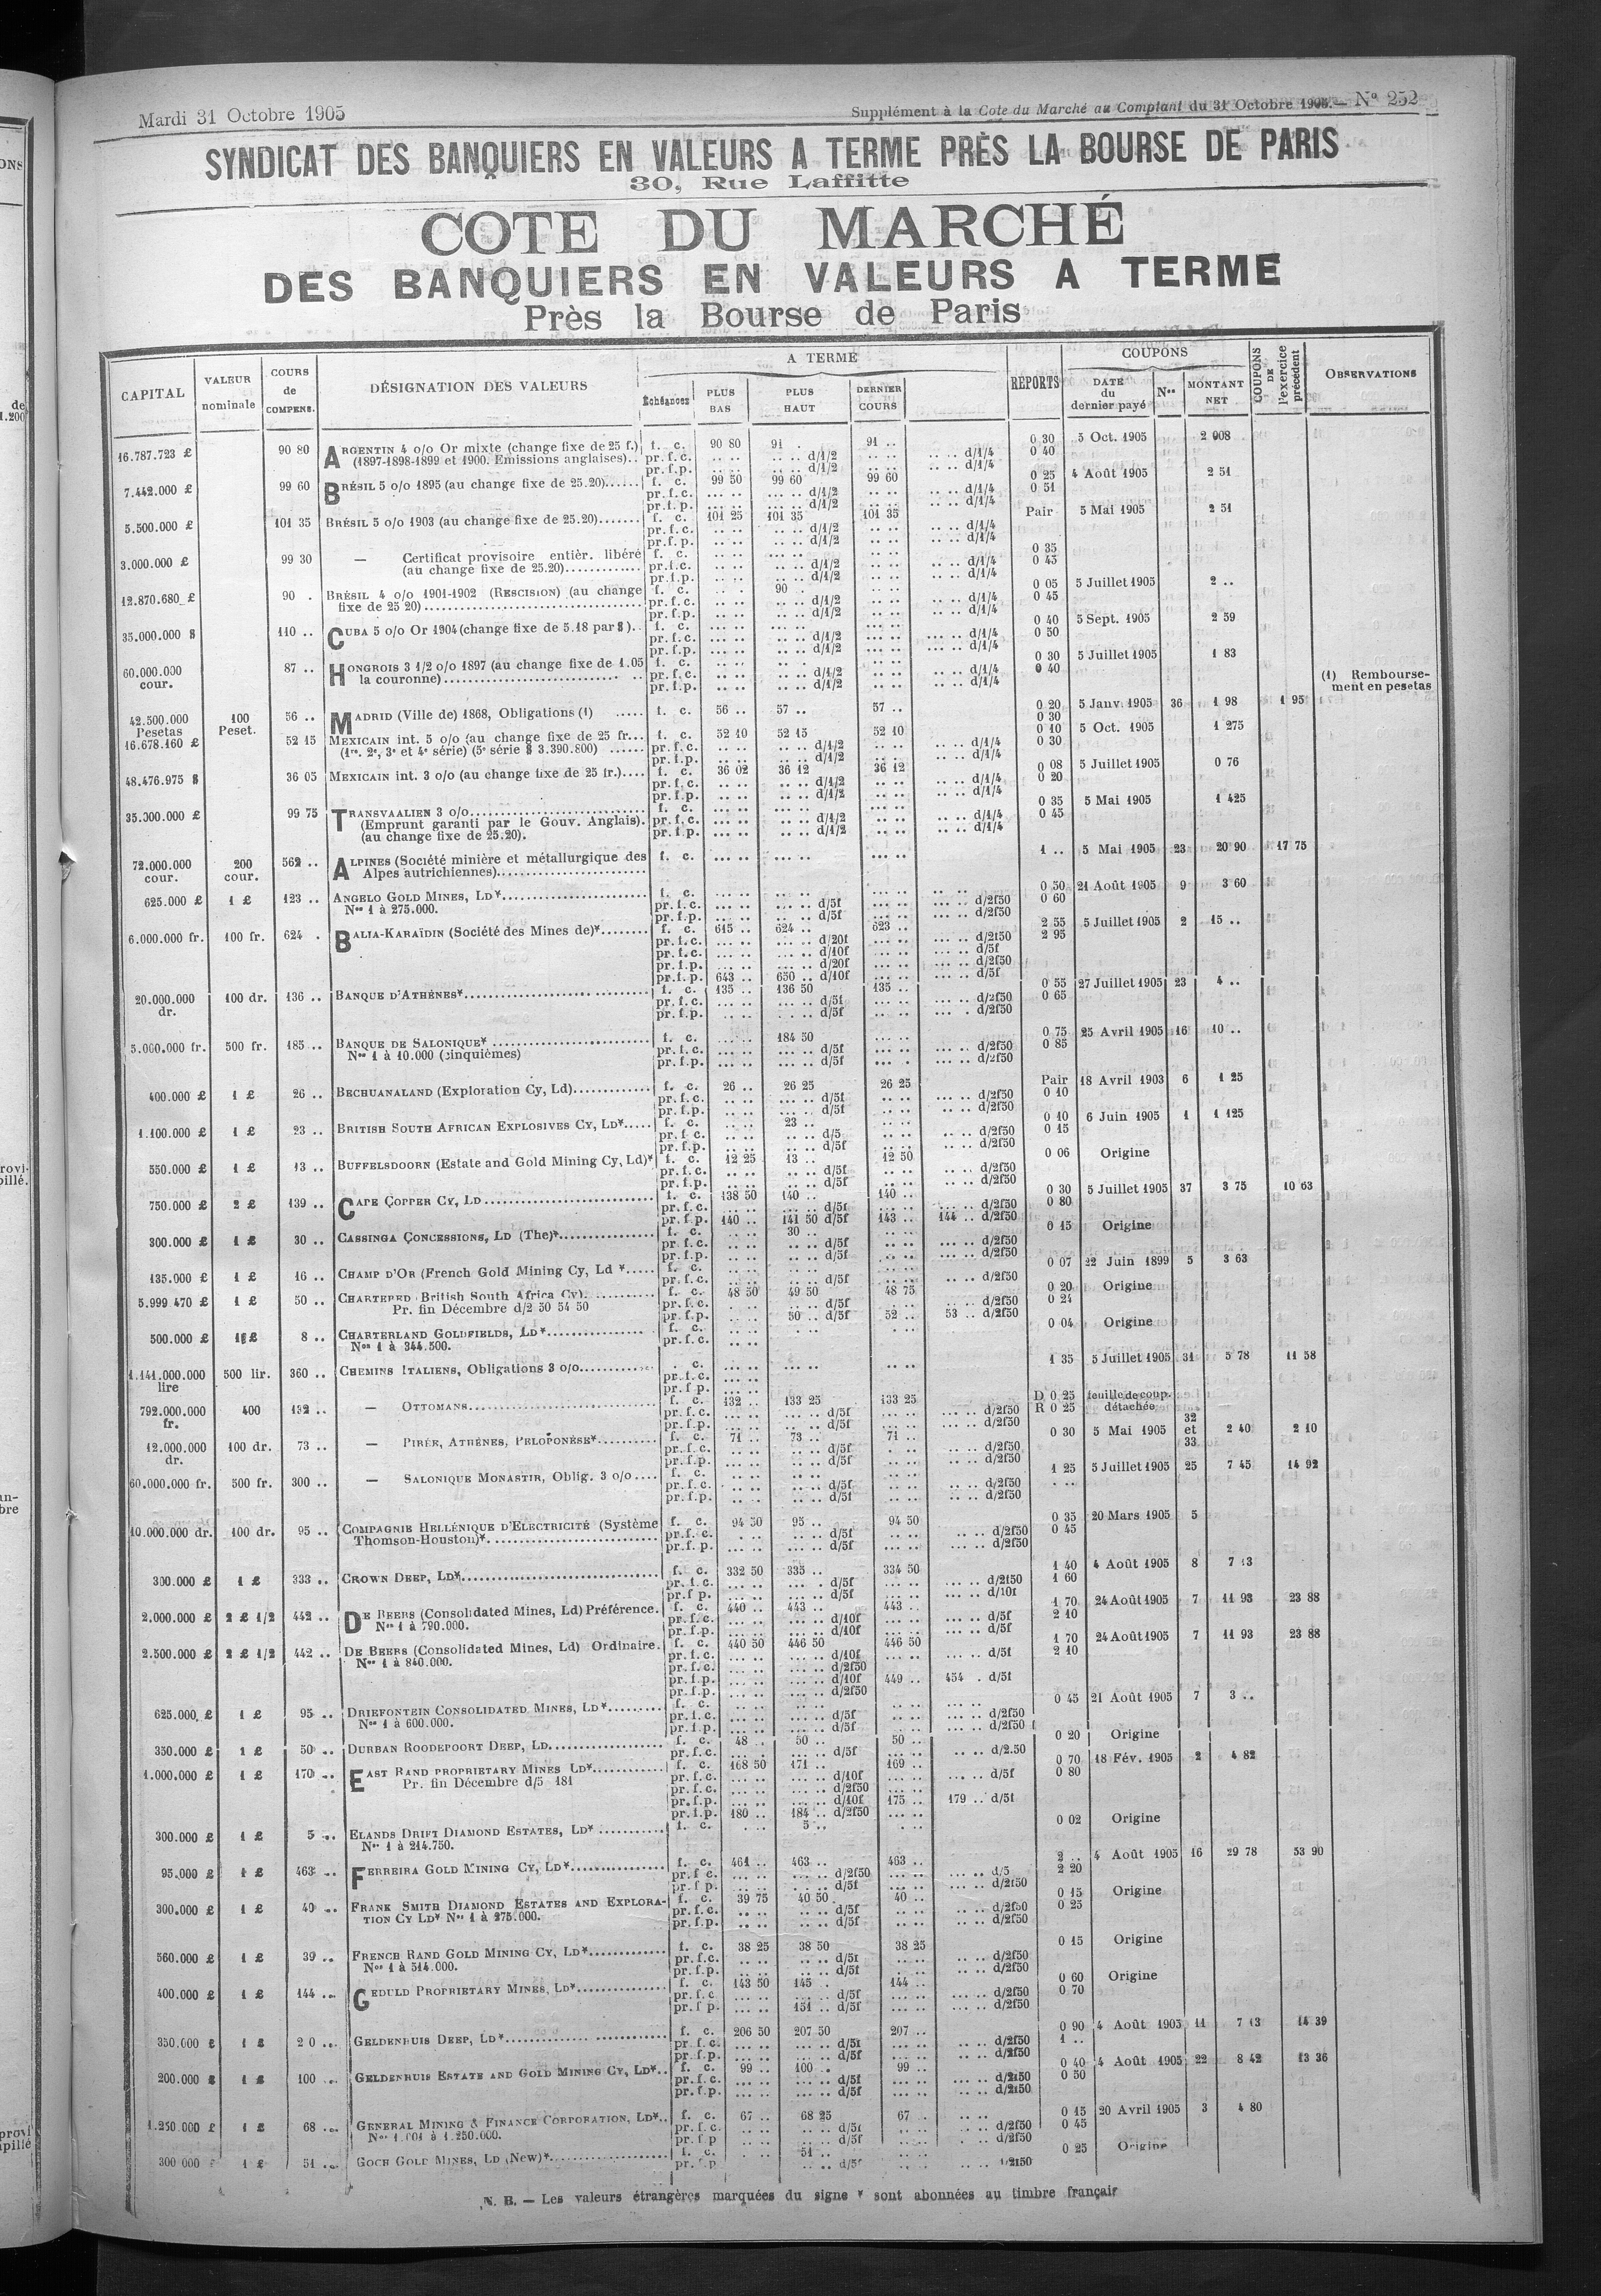 Mardi 31 Octobre 1905
Supplément à la Cote du Marché au Comptant du 31 Octobre 1905. — N° 252
SYNDICAT DES BANQUIERS EN VALEURS A TERME PRÈS LA BOURSE DE PARIS
30, Rue Laffitte
COTE DU MARCHÉ
DES BANQUIERS EN VALEURS A TERME
Près la Bourse de Paris
CAPITAL
VALEUR nominale
COURS de COMPENS.
DÉSIGNATION DES VALEURS
A TERME
Échéances
PLUS BAS
PLUS HAUT
DERNIER COURS
REPORTS
COUPONS
DATE du dernier payé
Nos
MONTANT NET
COUPONS DE l'exercice précédent
OBSERVATIONS
16.787.723 £ 90 80 ARGENTIN 4 o/o Or mixte (change fixe de 25 f.) f. c. 90 80 91 . 91 .. 0 30 5 Oct. 1905 2 008
(1897-1898-1899 et 1900. Emissions anglaises).. pr. f. c. .. .. .. .. d/1/2 .. .. .. .. d/1/4 0 40
pr. f. p. .. .. .. .. d/1/2 .. .. .. .. d/1/4
7.442.000 £ 99 60 BRÉSIL 5 o/o 1895 (au change fixe de 25.20)...... f. c. 99 50 99 60 99 60 0 25 4 Août 1905 2 51
pr. f. c. d/1/2 d/1/4 0 51
pr. f. p. d/1/2 d/1/4
5.500.000 £ 101 35 BRÉSIL 5 o/o 1903 (au change fixe de 25.20)....... f. c. 101 25 101 35 101 35 Pair 5 Mai 1905 2 51
pr. f. c. d/1/2 d/1/4
pr. f. p. d/1/2 d/1/4
3.000.000 £ 99 30 — Certificat provisoire entièr. libéré f. c. 0 35
(au change fixe de 25.20)............. pr. f. c. d/1/2 d/1/4 0 45
pr. f. p. d/1/2 d/1/4
12.870.680 £ 90 . BRÉSIL 4 o/o 1901-1902 (RESCISION) (au change f. c. 90 . 0 05 5 Juillet 1905 2 ..
fixe de 25 20)................ pr. f. c. d/1/2 d/1/4 0 45
pr. f. p. d/1/2 d/1/4
35.000.000 $ 110 .. CUBA 5 o/o Or 1904 (change fixe de 5.18 par $).. f. c. 0 40 5 Sept. 1905 2 59
pr. f. c. d/1/2 d/1/4 0 50
pr. f. p. d/1/2 d/1/4
60.000.000 cour. 87 .. HONGROIS 3 1/2 o/o 1897 (au change fixe de 1.05 f. c. 0 30 5 Juillet 1905 1 83
la couronne)................ pr. f. c. d/1/2 d/1/4 0 40
pr. f. p. d/1/2 d/1/4
(1) Remboursement en pesetas
42.500.000 Pesetas 100 Peset. 56 .. MADRID (Ville de) 1868, Obligations (1) ..... f. c. 56 .. 57 .. 57 .. 0 20 5 Janv. 1905 36 1 98 1 95
0 30
16.678.160 £ 52 15 MEXICAIN int. 5 o/o (au change fixe de 25 fr... f. c. 52 10 52 15 52 10 0 10 5 Oct. 1905 1 275
(1re, 2e, 3e et 4e série) (5e série $ 3.390.800) ...... pr. f. c. d/1/2 d/1/4 0 30
pr. f. p. d/1/2 d/1/4
48.476.975 $ 36 05 MEXICAIN int. 3 o/o (au change fixe de 25 fr.).... f. c. 36 02 36 12 36 12 0 08 5 Juillet 1905 0 76
pr. f. c. d/1/2 d/1/4 0 20
pr. f. p. d/1/2 d/1/4
35.000.000 £ 99 75 TRANSVAALIEN 3 o/o............ f. c. 0 35 5 Mai 1905 1 425
(Emprunt garanti par le Gouv. Anglais). pr. f. c. d/1/2 d/1/4 0 45
(au change fixe de 25.20). pr. f. p. d/1/2 d/1/4
72.000.000 cour. 200 cour. 562 .. ALPINES (Société minière et métallurgique des f. c. 1 .. 5 Mai 1905 23 20 90 17 75
Alpes autrichiennes)............
625.000 £ 1 £ 123 .. ANGELO GOLD MINES, LD*............ f. c. 0 50 21 Août 1905 9 3 60
Nos 1 à 275.000. pr. f. c. d/5f d/2f50 0 60
pr. f. p. d/5f d/2f50
6.000.000 fr. 100 fr. 624 . BALIA-KARAÏDIN (Société des Mines de)*........ f. c. 615 .. 624 .. 623 .. 2 55 5 Juillet 1905 2 15 ..
pr. f. c. d/20f d/2f50 2 95
pr. f. c. d/10f d/5f
pr. f. p. d/20f d/2f50
pr. f. p. 643 .. 650 .. d/10f d/5f
20.000.000 dr. 100 dr. 136 .. BANQUE D'ATHÈNES*............ f. c. 135 .. 136 50 135 .. 0 55 27 Juillet 1905 23 4 ..
pr. f. c. d/5f d/2f50 0 65
pr. f. p. d/5f d/2f50
5.000.000 fr. 500 fr. 185 .. BANQUE DE SALONIQUE*............ f. c. 184 50 0 75 25 Avril 1905 16 10 ..
Nos 1 à 10.000 (cinquièmes) pr. f. c. d/5f d/2f50 0 85
pr. f. p. d/5f d/2f50
400.000 £ 1 £ 26 .. BECHUANALAND (Exploration Cy, Ld)............ f. c. 26 .. 26 25 26 25 Pair 18 Avril 1903 6 1 25
pr. f. c. d/5f d/2f50 0 10
pr. f. p. d/5f d/2f50
1.100.000 £ 1 £ 23 .. BRITISH SOUTH AFRICAN EXPLOSIVES CY, LD*..... f. c. 23 .. 0 10 6 Juin 1905 1 1 125
pr. f. c. d/5 d/2f50 0 15
pr. f. p. d/5f d/2f50
550.000 £ 1 £ 13 .. BUFFELSDOORN (Estate and Gold Mining Cy, Ld)* f. c. 12 25 13 .. 12 50 0 06 Origine
pr. f. c. d/5f d/2f50
pr. f. p. d/5f d/2f50
750.000 £ 2 £ 139 .. CAPE COPPER CY, LD............ f. c. 138 50 140 .. 140 .. 0 30 5 Juillet 1905 37 3 75 10 63
pr. f. c. d/5f d/2f50 0 80
pr. f. p. 140 .. 141 50 d/5f 143 .. 144 .. d/2f50
300.000 £ 1 £ 30 .. CASSINGA CONCESSIONS, LD (The)*............ f. c. 30 .. 0 15 Origine
pr. f. c. d/5f d/2f50
pr. f. p. d/5f d/2f50
135.000 £ 1 £ 16 .. CHAMP D'OR (French Gold Mining Cy, Ld *..... f. c. 0 07 22 Juin 1899 5 3 63
pr. f. c. d/5f d/2f50
5.999 470 £ 1 £ 50 .. CHARTERED (British South Africa Cy)............ f. c. 48 50 49 50 48 75 0 20 Origine
Pr. fin Décembre d/2 50 54 50 pr. f. c. d/5f d/2f50 0 24
pr. f. p. 50 .. d/5f 52 .. 53 .. d/2f50
500.000 £ 1 £ 8 .. CHARTERLAND GOLDFIELDS, LD*............ f. c. 0 04 Origine
Nos 1 à 344.500. pr. f. c.
1.141.000.000 lire 500 lir. 360 .. CHEMINS ITALIENS, Obligations 3 o/o............ . c. 1 35 5 Juillet 1905 31 5 78 11 58
pr. f. c.
pr. f. p.
792.000.000 fr. 400 132 .. — OTTOMANS............ f. c. 132 .. 133 25 133 25 D 0 25 feuille de coup.
pr. f. c. d/5f d/2f50 R 0 25 détachée
pr. f. p. d/5f d/2f50
12.000.000 dr. 100 dr. 73 .. — PIRÉE, ATHÈNES, PELOPONÈSE*............ f. c. 71 .. 73 .. 71 .. 0 30 5 Mai 1905 32 et 33 2 40 2 10
pr. f. c. d/5f d/2f50
pr. f. p. d/5f d/2f50
60.000.000 fr. 500 fr. 300 .. — SALONIQUE MONASTIR, Oblig. 3 o/o.... f. c. 1 25 5 Juillet 1905 25 7 45 14 92
pr. f. c. d/5f d/2f50
pr. f. p. d/5f d/2f50
10.000.000 dr. 100 dr. 95 .. COMPAGNIE HELLÉNIQUE D'ELECTRICITÉ (Système f. c. 94 50 95 .. 94 50 0 35 20 Mars 1905 5
Thomson-Houston)*............ pr. f. c. d/5f d/2f50 0 45
pr. f. p. d/5f d/2f50
300.000 £ 1 £ 333 .. CROWN DEEP, LD*............ f. c. 332 50 335 .. 334 50 1 40 4 Août 1905 8 7 13
pr. f. c. d/5f d/2f50 1 60
pr. f p. d/5f d/10f
2.000.000 £ 2 £ 1/2 442 .. DE BEERS (Consolidated Mines, Ld) Préférence. f. c. 440 .. 443 .. 443 .. 1 70 24 Août 1905 7 11 93 23 88
Nos 1 à 790.000. pr. f. c. d/10f d/5f 2 10
pr. f. p. d/10f d/5f
2.500.000 £ 2 £ 1/2 442 .. DE BEERS (Consolidated Mines, Ld) Ordinaire. f. c. 440 50 446 50 446 50 1 70 24 Août 1905 7 11 93 23 88
Nos 1 à 840.000. pr. f. c. d/10f d/5f 2 10
pr. f. c. d/2f50
pr. f. p. d/10f 449 .. 454 . d/5f
pr. f. p. d/2f50
625.000 £ 1 £ 95 .. DRIEFONTEIN CONSOLIDATED MINES, LD*......... f. c. 0 45 21 Août 1905 7 3 ..
Nos 1 à 600.000. pr. f. c. d/5f d/2f50
pr. f. p. d/5f d/2f50
350.000 £ 1 £ 50 .. DURBAN ROODEPOORT DEEP, LD............ f. c. 48 .. 50 .. 50 .. 0 20 Origine
pr. f. c. d/5f d/2.50
1.000.000 £ 1 £ 170 .. EAST RAND PROPRIETARY MINES LD*............ f. c. 168 50 171 .. 169 .. 0 70 18 Fév. 1905 2 4 82
Pr. fin Décembre d/5 181 pr. f. c. d/10f d/5f 0 80
pr. f. c. d/2f50
pr. f. p. d/10f 175 .. 179 .. d/5f
pr. f. p. 180 .. 184 .. d/2f50
300.000 £ 1 £ 5 .. ELANDS DRIFT DIAMOND ESTATES, LD*............ f. c. 5 .. 0 02 Origine
Nos 1 à 214.750.
95.000 £ 1 £ 463 .. FERREIRA GOLD MINING CY, LD*............ f. c. 461 .. 463 .. 463 .. 2 .. 4 Août 1905 16 29 78 53 90
pr. f. c. d/2f50 d/5 2 20
pr. f p. d/5f d/2f50
300.000 £ 1 £ 40 .. FRANK SMITH DIAMOND ESTATES AND EXPLORA- f. c. 39 75 40 50 40 .. 0 15 Origine
TION CY LD* Nos 1 à 275.000. pr. f. c. d/5f d/2f50 0 25
pr. f. p. d/5f d/2f50
560.000 £ 1 £ 39 .. FRENCH RAND GOLD MINING CY, LD*............ f. c. 38 25 38 50 38 25 0 15 Origine
Nos 1 à 514.000. pr. f. c. d/5f d/2f50
pr. f. p. d/5f d/2f50
400.000 £ 1 £ 144 .. GEDULD PROPRIETARY MINES, LD*............ f. c. 143 50 145 . 144 .. 0 60 Origine
pr. f. c d/5f d/2f50 0 70
pr. f p. 151 .. d/5f d/2f50
350.000 £ 1 £ 2 0 .. GELDENHUIS DEEP, LD*............ f. c. 206 50 207 50 207 .. 0 90 4 Août 1905 11 7 13 14 39
pr. f. c. d/5f d/2f50 1 ..
pr. f. p. d/5f d/2f50
200.000 £ 1 £ 100 .. GELDENHUIS ESTATE AND GOLD MINING CY, LD*.. f. c. 99 .. 100 .. 99 .. 0 40 4 Août 1905 22 8 42 13 36
pr. f. c. d/5f d/2f50 0 50
pr. f. p. d/5f d/2f50
1.250.000 £ 1 £ 68 .. GENERAL MINING & FINANCE CORPORATION, LD*.. f. c. 67 .. 68 25 67 . 0 15 20 Avril 1905 3 4 80
Nos 1.001 à 1.250.000. pr. f. c. d/5f d/2f50 0 45
pr. f. p d/5f d/2f50
300 000 £ 1 £ 51 .. GOCH GOLD MINES, LD (New)*............ f. c. 51 .. 0 25 Origine
pr. f. p d/5f 2f50
N. B. — Les valeurs étrangères marquées du signe * sont abonnées au timbre français